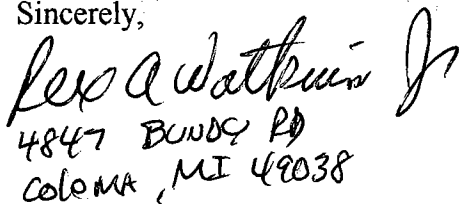 Sincerely,
Rex A Watkins Jr
4847 BUNDY RD
COLOMA, MI 49038